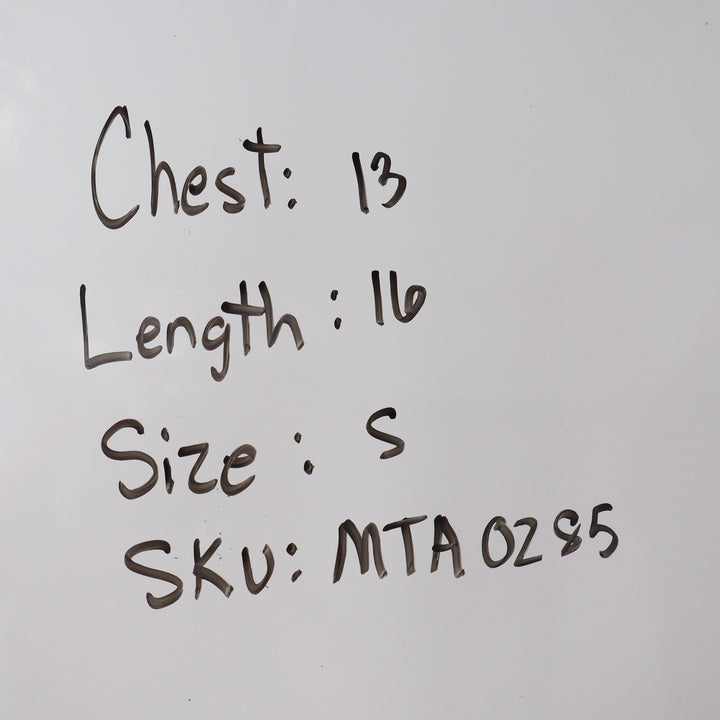 Chest: 13
Length: 16
Size: S
SKU: MTA0285